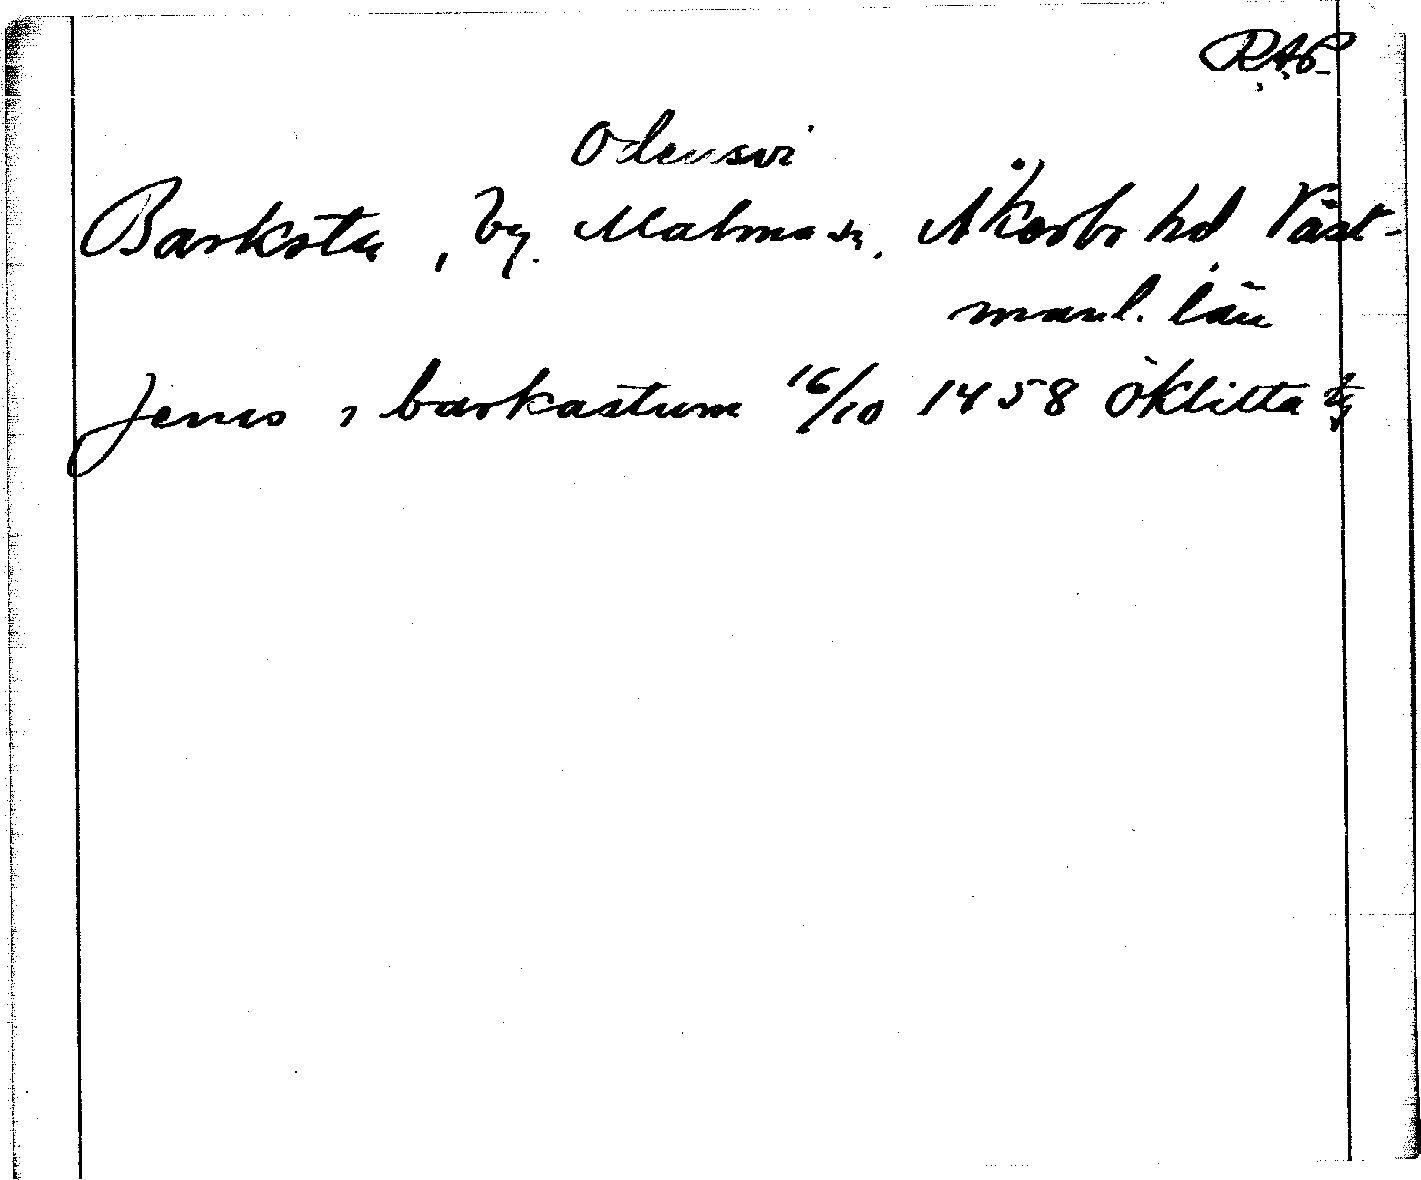 RAP
Odensvi
Barksta, by. Malma sn. Åkerbo hd Väst-
manl. län
Jenis i barkastum 16/10 1458 öklitta